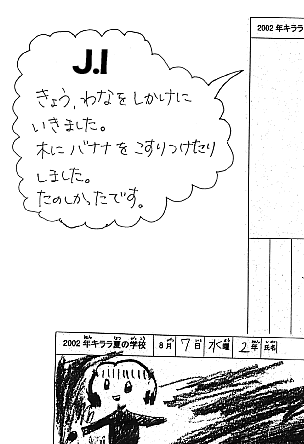 2002年キララ
J.I
きょう、わなをしかけに
いきました。
木にバナナをこすりつけたり
しました。
たのしかったです。
2002年キララ夏の学校 8月 7日 水曜 2年 氏名